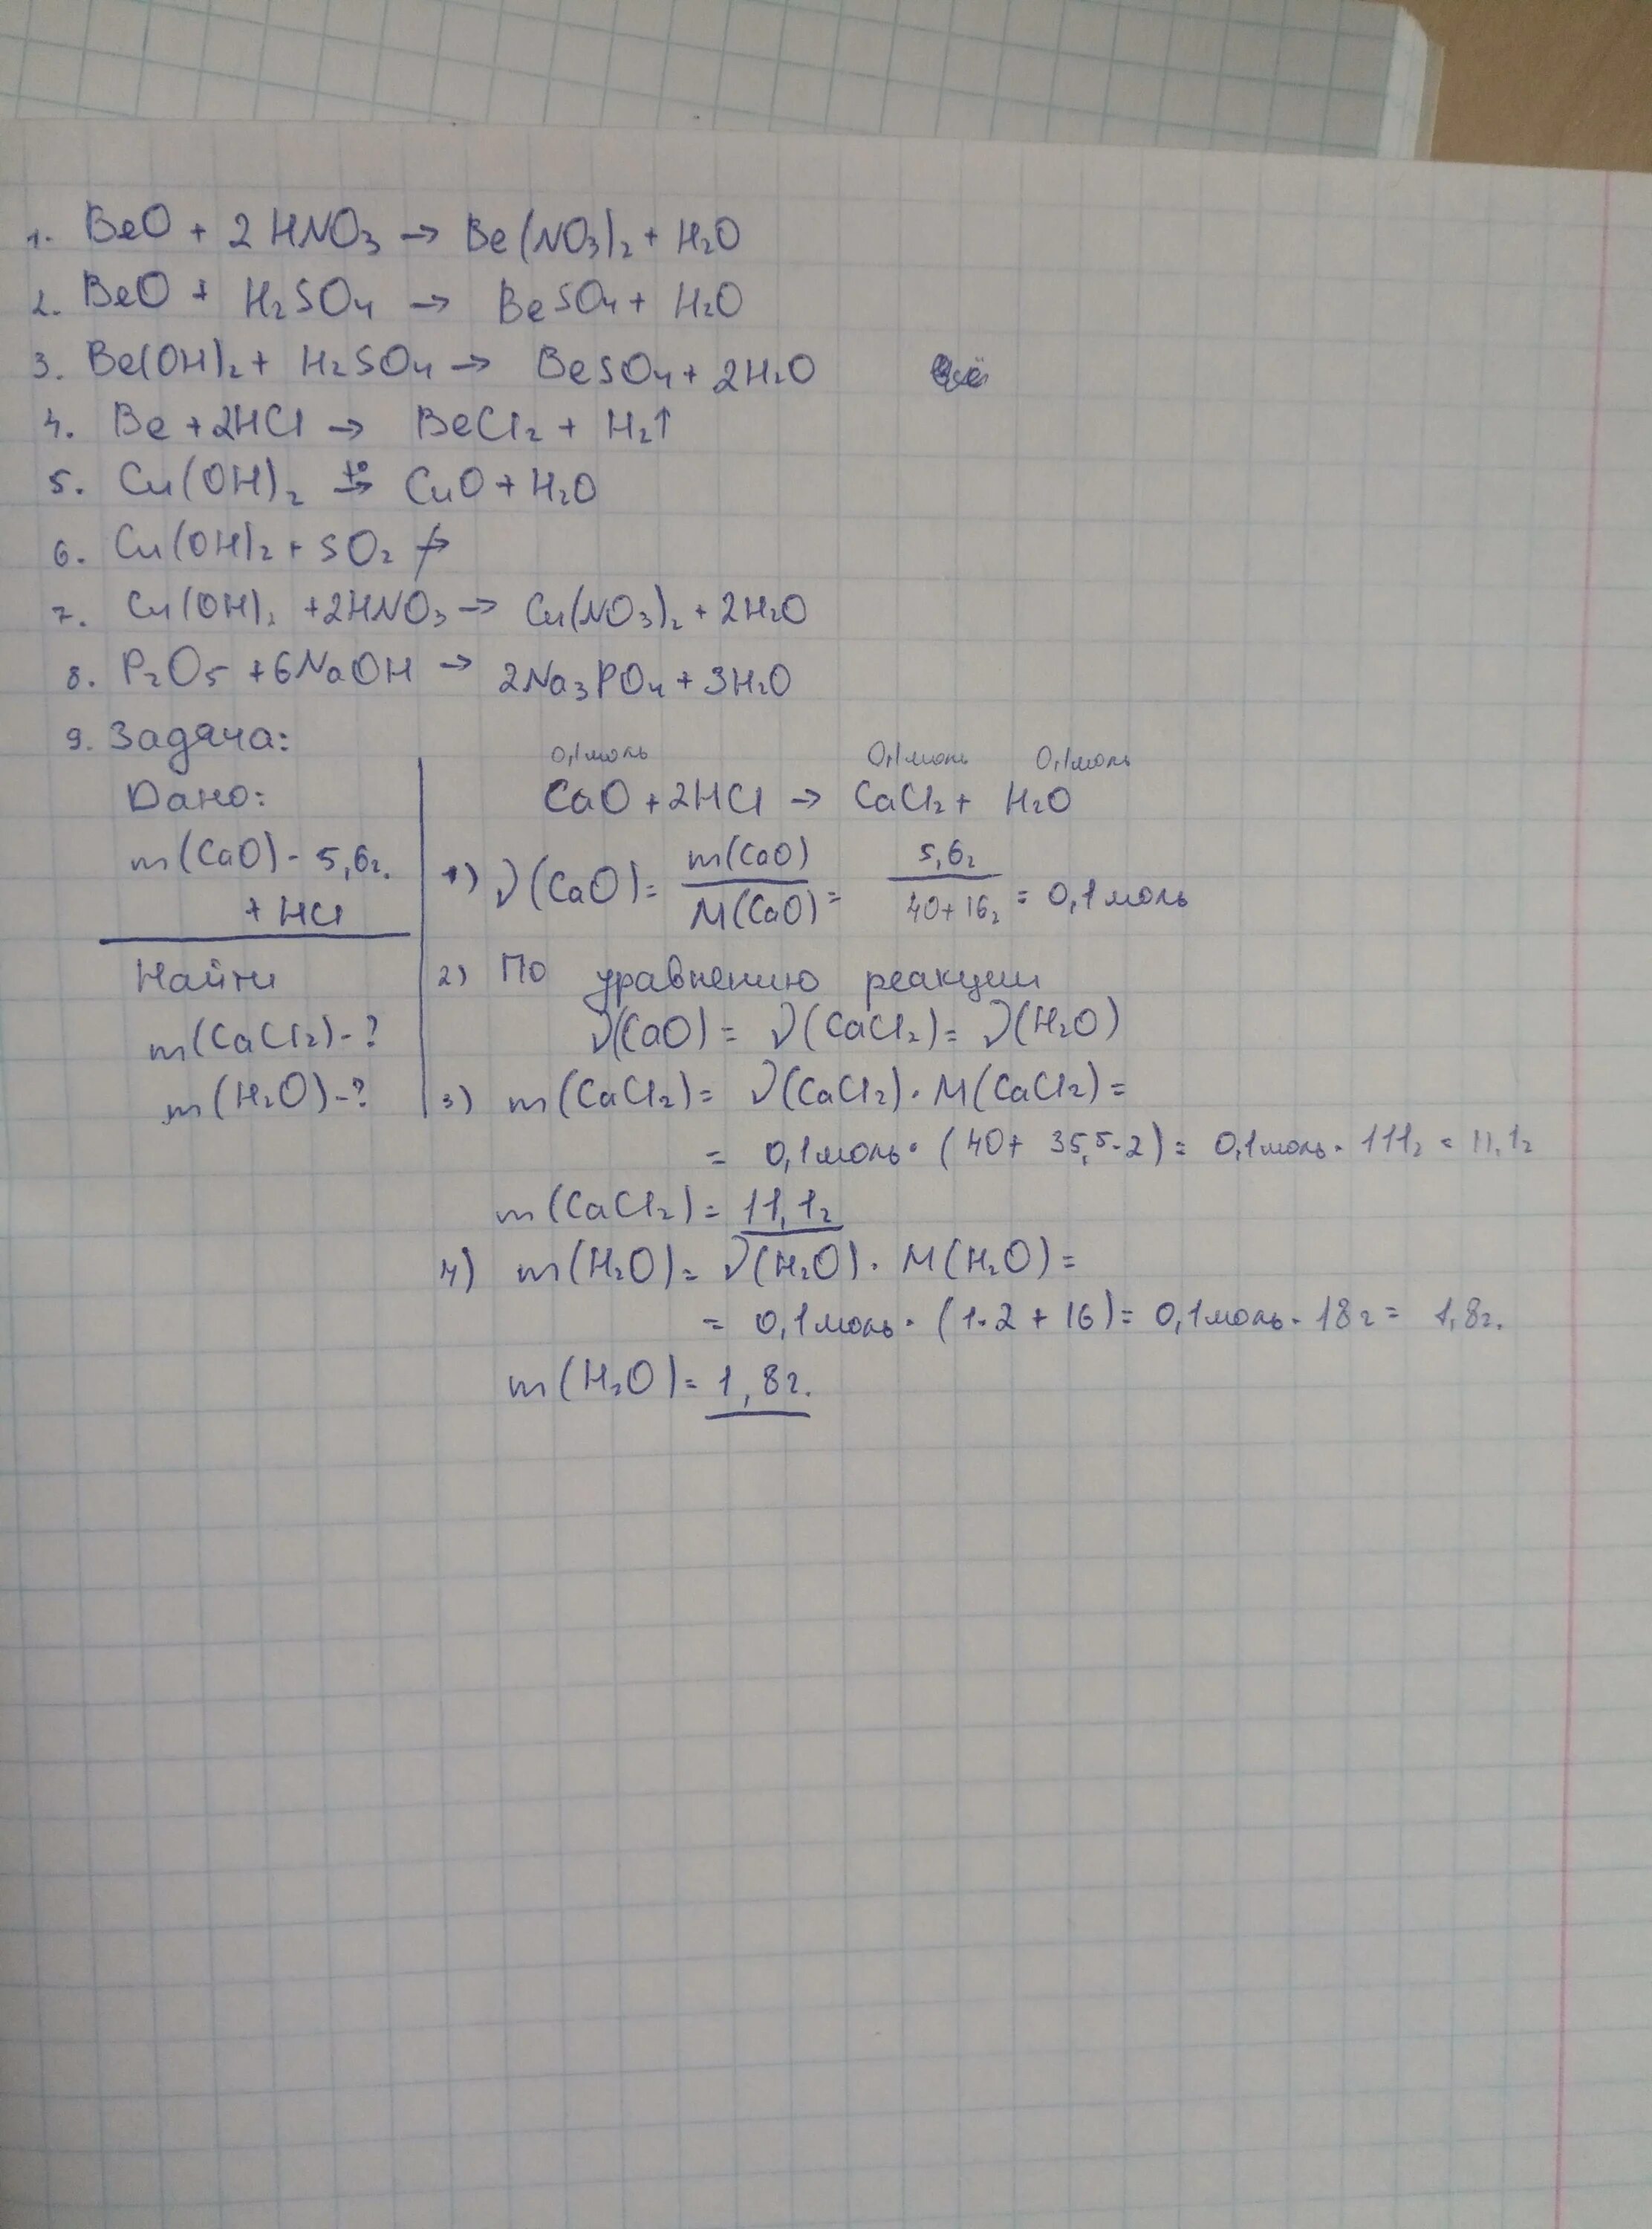 1. BeO + 2HNO₃ → Be(NO₃)₂ + H₂O
2. BeO + H₂SO₄ → BeSO₄ + H₂O
3. Be(OH)₂ + H₂SO₄ → BeSO₄ + 2H₂O
4. Be + 2HCl → BeCl₂ + H₂↑
5. Cu(OH)₂ t°→ CuO + H₂O
6. Cu(OH)₂ + SO₂ ↛
7. Cu(OH)₂ + 2HNO₃ → Cu(NO₃)₂ + 2H₂O
8. P₂O₅ + 6NaOH → 2Na₃PO₄ + 3H₂O
9. Задача:
Дано:
m(CaO) - 5,6г.
+ HCl
Найти
m(CaCl₂)-?
m(H₂O)-?
0,1моль 0,1моль 0,1моль
CaO + 2HCl → CaCl₂ + H₂O
1) ν(CaO) = m(CaO)/M(CaO) = 5,6г/40+16г = 0,1моль
2) По уравнению реакции
ν(CaO) = ν(CaCl₂) = ν(H₂O)
3) m(CaCl₂) = ν(CaCl₂)·M(CaCl₂) =
= 0,1моль·(40+ 35,5·2) = 0,1моль·111г = 11,1г
m(CaCl₂) = 11,1г
4) m(H₂O) = ν(H₂O)·M(H₂O) =
= 0,1моль·(1·2+16) = 0,1моль·18г = 1,8г.
m(H₂O) = 1,8г.